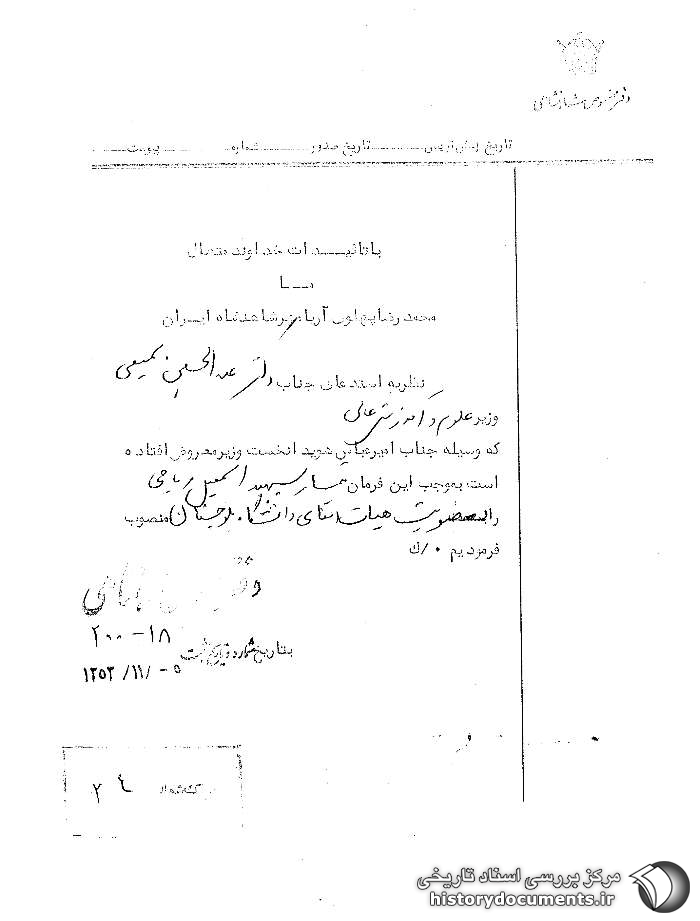 دفتر مخصوص شاهنشاهی
تاریخ پیش نویس تاریخ صدور شماره پیوست
با تائیدات خداوند متعال
مـا
محمد رضا پهلوی آریامهر شاهنشاه ایران
نظر به استدعای جناب دکتر عبدالحسین سمیعی
وزیر علوم و آموزش عالی
که وسیله جناب امیرعباس هویدا نخست وزیر معروض افتاده
است بموجب این فرمان تیمسار سپهبد اسمعیل ریاحی
را بعضویت هیات امنای دانشگاه بلوچستان منصوب
فرمودیم ۰/ك
۲۰۰-۱۸
بتاریخ شماره و تاریخ ثبت
۱۳۵۳/۱۱/-۵
۲ ٤
مرکز بررسی اسناد تاریخی
historydocuments.ir